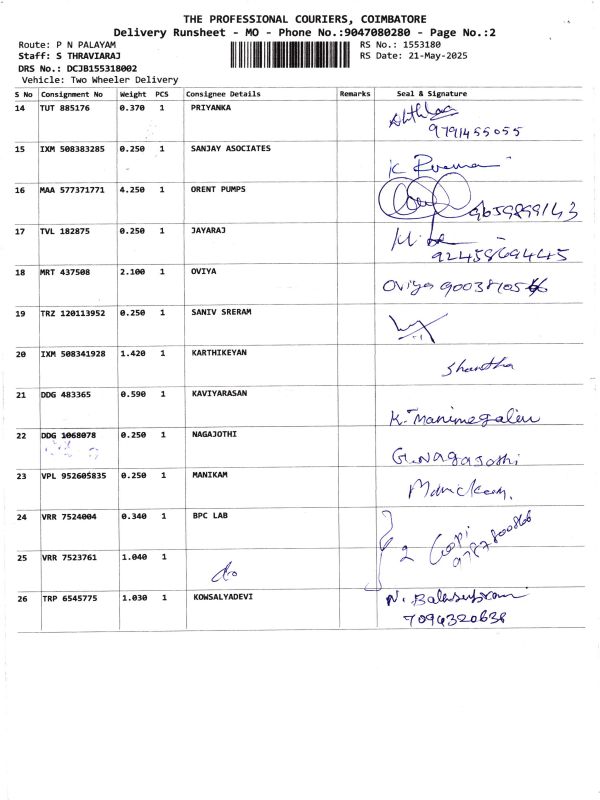 THE PROFESSIONAL COURIERS, COIMBATORE
Delivery Runsheet - MO - Phone No.:9047080280 - Page No.:2
Route: P N PALAYAM RS No.: 1553180
Staff: S THRAVIARAJ RS Date: 21-May-2025
DRS No.: DCJB155318002
Vehicle: Two Wheeler Delivery
S No Consignment No Weight PCS Consignee Details Remarks Seal & Signature
14 TUT 885176 0.370 1 PRIYANKA
9791455055
15 IXM 508383285 0.250 1 SANJAY ASOCIATES
K
16 MAA 577371771 4.250 1 ORENT PUMPS
9659899143
17 TVL 182875 0.250 1 JAYARAJ
9245869445
18 MRT 437508 2.100 1 OVIYA
Oviya
19 TRZ 120113952 0.250 1 SANIV SRERAM
20 IXM 508341928 1.420 1 KARTHIKEYAN
Shantha
21 DDG 483365 0.590 1 KAVIYARASAN
K. Manimegalai
22 DDG 1068078 0.250 1 NAGAJOTHI
G.Nagajothi
23 VPL 952605835 0.250 1 MANIKAM
Manickam.
24 VRR 7524004 0.340 1 BPC LAB
2 Gopi
9787800866
25 VRR 7523761 1.040 1
do
26 TRP 6545775 1.030 1 KOWSALYADEVI
7094320638